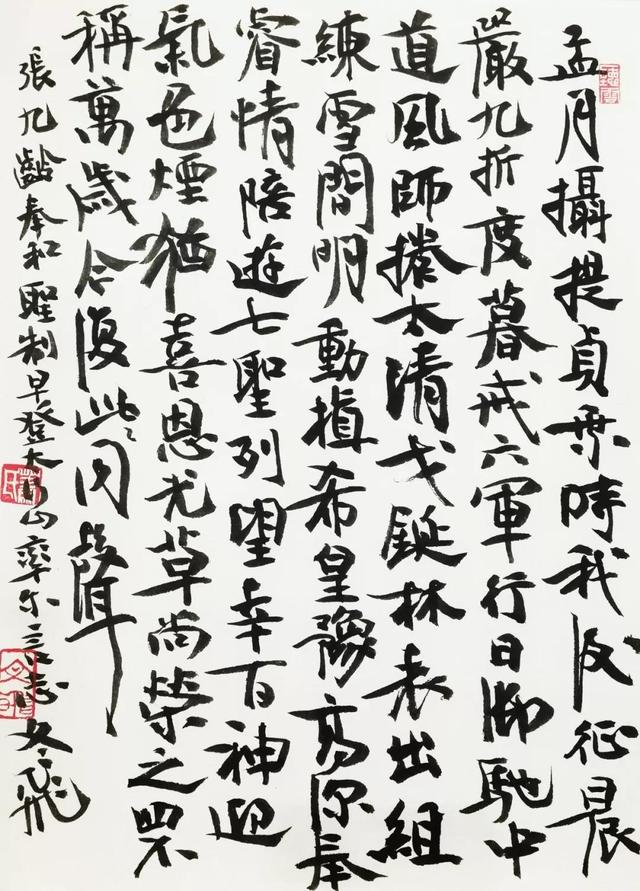 孟月攝提貞乘時我后征晨
嚴九折度暮戒六軍行日御馳中
道風師捲太清戈鋋林表出組
練雪間明動植希皇豫高深奉
睿情陪遊七聖列望幸百神迎
氣色煙猶喜恩光草尚榮之罘
稱萬歲今復此同聲
張九齡奉和聖制早登太行山率尔言志 文飛